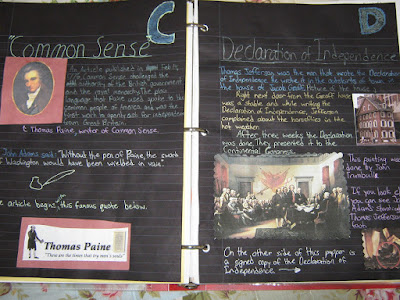 C
"Common Sense"
An Article published in
Common Sense challenged the
authority of the British government
and the royal monarchy. The plain
language that Paine used spoke to the
common people of America and was the
first work to openly ask for independence
from Great Britain.
Thomas Paine, writer of Common Sense
John Adams said: "Without the pen of Paine, the sword
of Washington would have been wielded in vain."
article begins, this famous quote below.
Thomas Paine
"These are the times that try men's souls"
D
Declaration of Independence
Thomas Jefferson was the man that wrote the Declaration
of Independence. He wrote it in the outskirts of
the house of Jacob Graff. Picture of the house
Right next door from the Graff house
was a stable and while writing the
Declaration of Independence, Jefferson
complained about the horseflies in the
hot weather.
After three weeks the Declaration
was done. They presented it to the
Continental Congress.
This painting was
done by John
Trumbull
If you look cl
you can see J
Adams standing
Thomas Jefferson
foot.
On the other side of this paper
is a signed copy of the Declaration of
Independence.